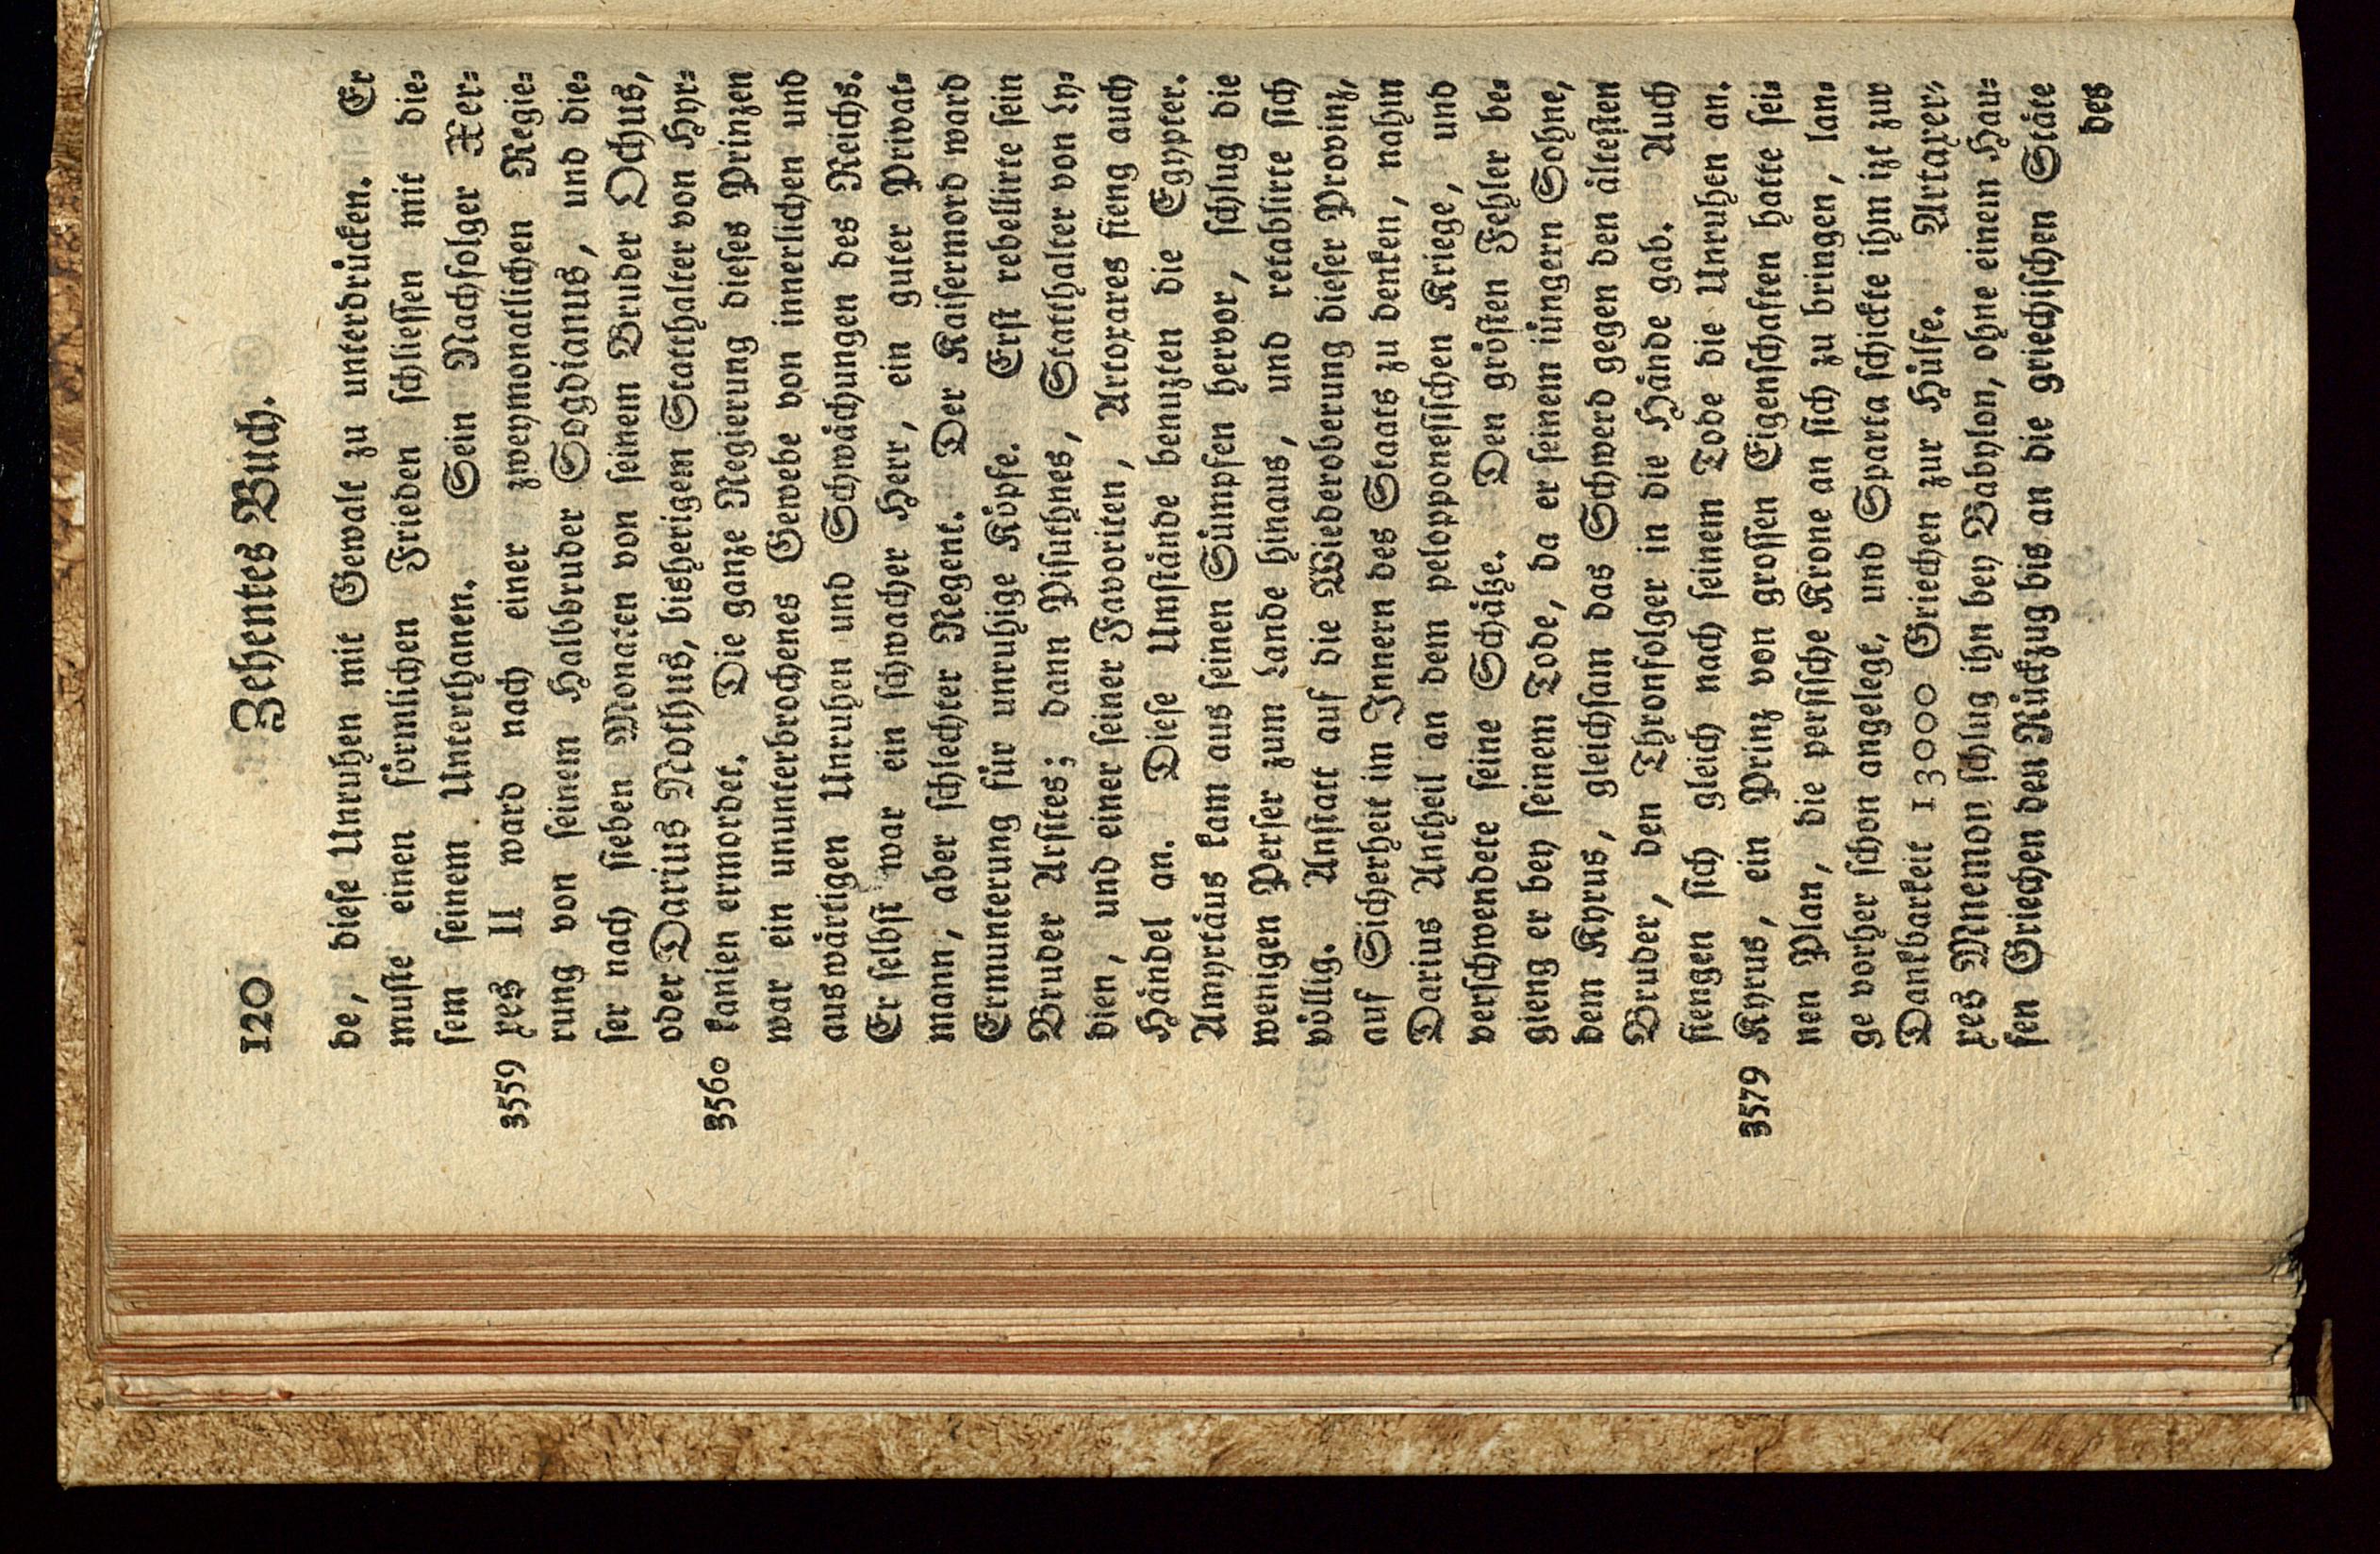 120 Zehentes Buch.
de, diese Unruhen mit Gewalt zu unterdrücken. Er
muste einen förmlichen Frieden schliessen mit die-
sem seinem Unterthanen. Sein Nachfolger Xer-
3559 xes II ward nach einer zweymonatlichen Regie-
rung von seinem Halbbruder Sogdianus, und die-
ser nach sieben Monaten von seinem Bruder Ochus,
oder Darius Nothus, bisherigem Statthalter von Hyr-
3560 kanien ermordet. Die ganze Regierung dieses Prinzen
war ein ununterbrochenes Gewebe von innerlichen und
auswärtigen Unruhen und Schwächungen des Reichs.
Er selbst war ein schwacher Herr, ein guter Privat-
mann, aber schlechter Regent. Der Kaisermord ward
Ermunterung für unruhige Köpfe. Erst rebellirte sein
Bruder Arsites; dann Pisuthnes, Statthalter von Ly-
dien, und einer seiner Favoriten, Artoxares fieng auch
Händel an. Diese Umstände benuzten die Egypter.
Amyrtäus kam aus seinen Sümpfen hervor, schlug die
wenigen Perser zum Lande hinaus, und retablirte sich
völlig. Anstatt auf die Wiederoberung dieser Provinz,
auf Sicherheit im Innern des Staats zu denken, nahm
Darius Antheil an dem peloponnesischen Kriege, und
verschwendete seine Schätze. Den grösten Fehler be-
gieng er bey seinem Tode, da er seinem iüngern Sohne,
dem Kyrus, gleichsam das Schwerd gegen den ältesten
Bruder, den Thronfolger in die Hände gab. Auch
fiengen sich gleich nach seinem Tode die Unruhen an.
3579 Kyrus, ein Prinz von grossen Eigenschaften hatte sei-
nen Plan, die persische Krone an sich zu bringen, lan-
ge vorher schon angelegt, und Sparta schickte ihm izt zur
Dankbarkeit 13000 Griechen zur Hülfe. Artaxer-
xes Mnemon schlug ihn bey Babylon, ohne einem Hau-
fen Griechen den Rückzug bis an die griechischen Stäte
des